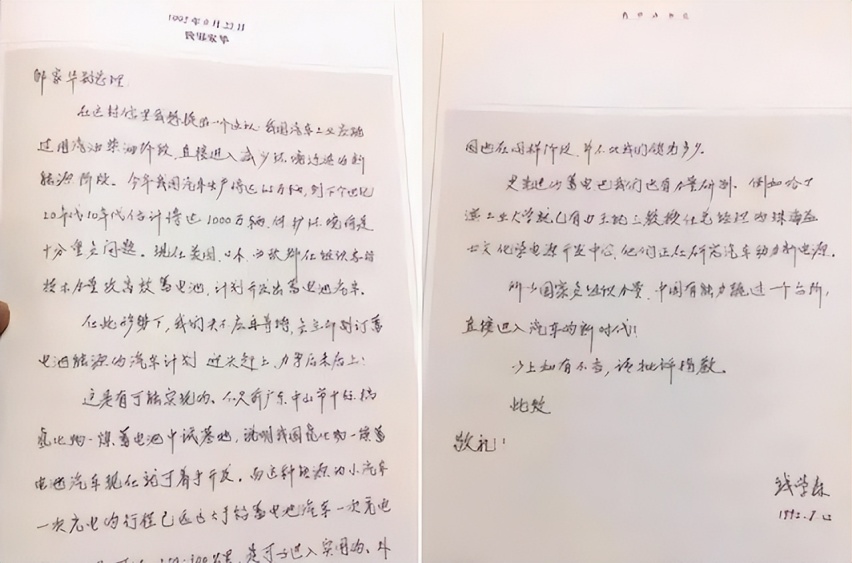 邹家华副总理:
在这封信里我想提出一个建议:我国汽车工业应跳
过用汽油柴油阶段,直接进入减少环境污染的新
能源阶段。今年我国汽车生产将达 万辆,到下个世纪
20年代10年代估计将达1000万辆,保护环境将是
十分重要问题。现在美国、日本、西欧都在组织高
技术力量攻高效蓄电池,计划开发出蓄电池汽车。
在此形势下,我们决不应再等待,要立即制订蓄
电池能源的汽车计划,迎头赶上,力争后来居上!
这是有可能实现的。不久前广东中山市中 搞
氢化物-镍蓄电池中试基地,说明我国氢化物-镍蓄
电池汽车现在就可着手开发。而这种能源的小汽车
一次充电的行程已远远大于铅蓄电池汽车一次充电
300公里,是可以进入实用的。外
国也在同样阶段,并不比我们领先多少。
更先进的蓄电池我们也有力量研制。例如哈尔
滨工业大学就已有 教授任总经理的珠海益
士文化学电源开发中心,他们正在研究汽车动力新电源。
所以国家要组织力量,中国有能力跳过一个台阶,
直接进入汽车的新时代!
以上如有不当,请批评指教。
此致
敬礼!
钱学森
1992.8.22